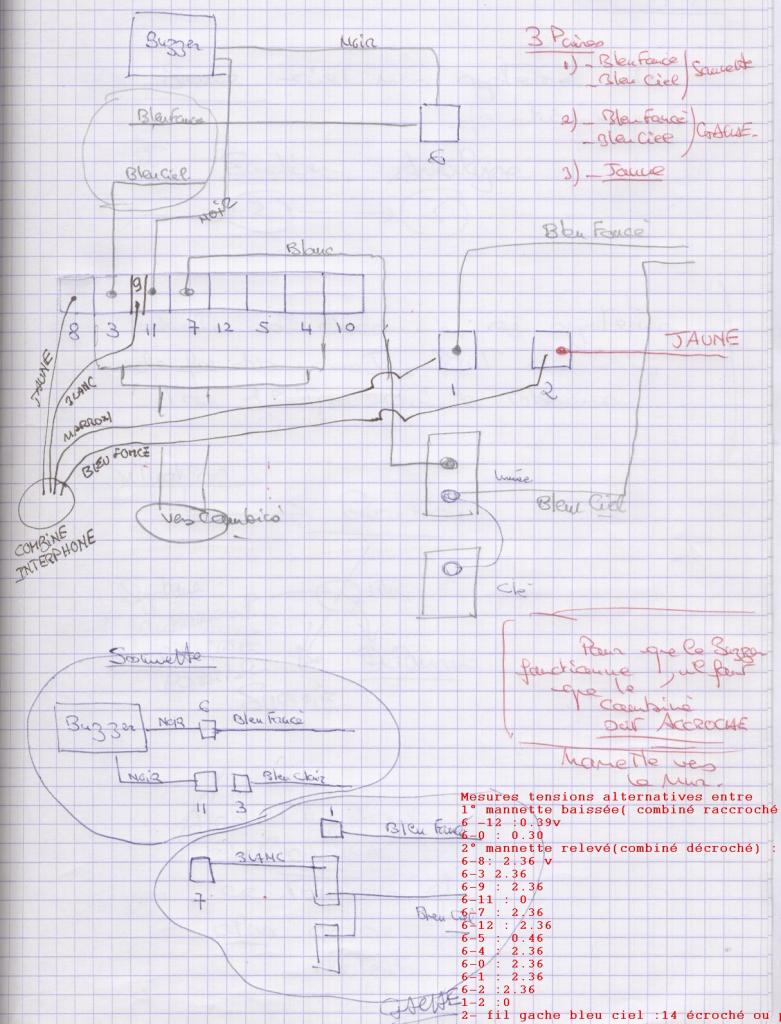 Buzzer
NOIR
3 Paires
1) - Bleu Foncé
- Bleu Ciel
Sonnette
Bleu Foncé
2) - Bleu Foncé
- Bleu Ciel
GACHE
6
Bleu Ciel
3) - Jaune
NOIR
Bleu Foncé
Blanc
9
8 3 11 7 12 5 4 10
JAUNE
1
2
JAUNE
BLANC
MARRON
BLEU FONCÉ
Bleu Ciel
vers Combiné
COMBINE
INTERPHONE
Clé
Sonnette
Pour que le Buzzer
fonctionne, il faut
que le
Combiné
soit ACCROCHE
Manette vers
le Mur.
6
Buzzer
NOIR
Bleu Foncé
NOIR
Bleu Clair
11
3
Mesures tensions alternatives entre
1° mannette baissée( combiné raccroché
6 -12 :0.39v
6-0 : 0.30
2° mannette relevé(combiné décroché) :
6-8: 2.36 v
6-3 2.36
6-9 : 2.36
6-11 : 0
6-7 : 2.36
6-12 : 2.36
6-5 : 0.46
6-4 : 2.36
6-0 : 2.36
6-1 : 2.36
6-2 :2.36
1-2 :0
2- fil gache bleu ciel :14 écroché ou
1
Bleu Foncé
BLANC
7
Bleu Ciel
GACHE